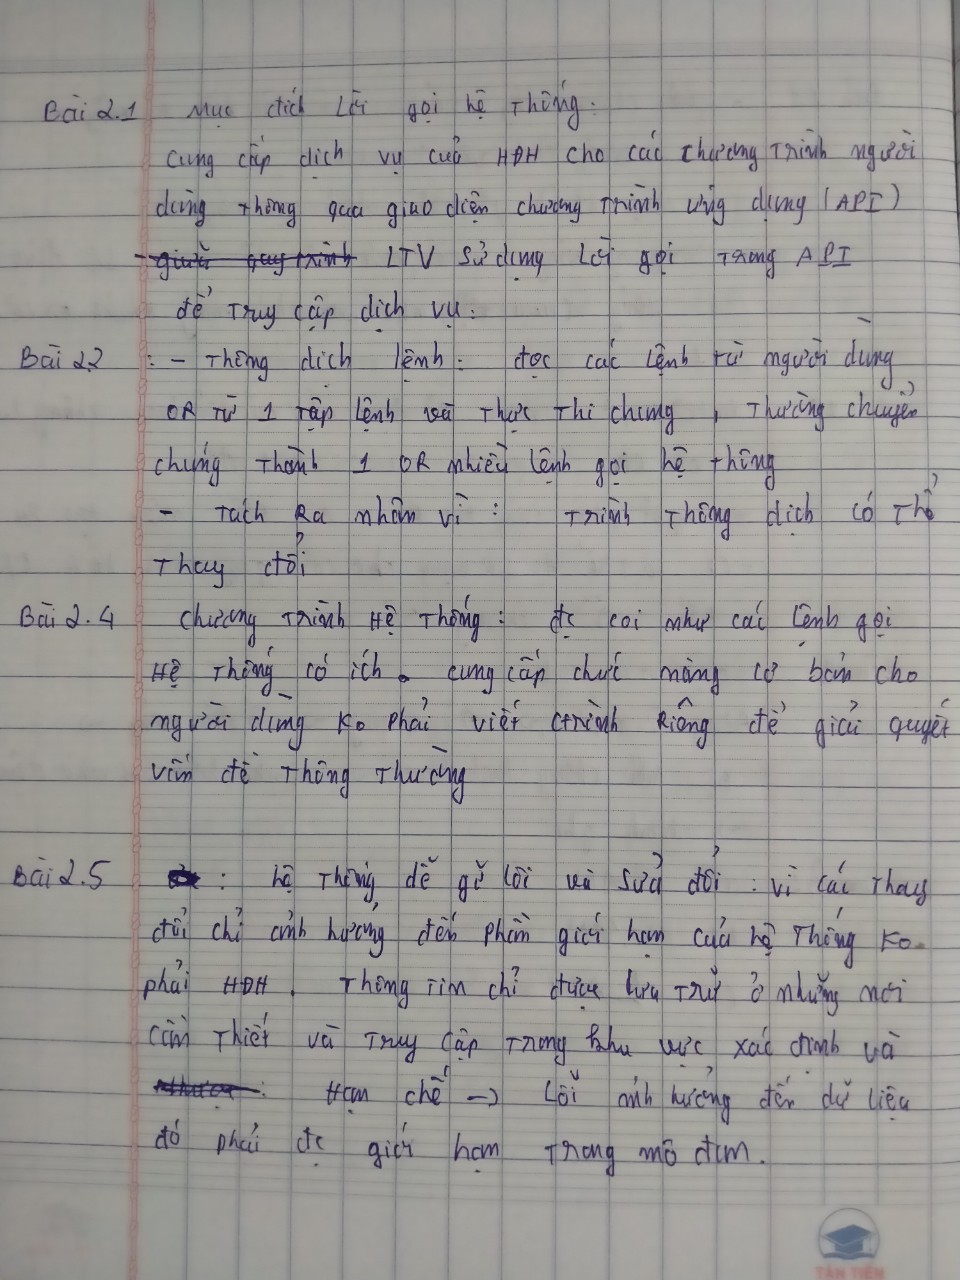 Bài 2.1 Mục đích Lời gọi hệ Thống.
Cung cấp dịch vụ của HĐH cho các chương Trình người
dùng Thông qua giao diện chương Trình ứng dụng (API)
giữa quy trình LTV Sử dụng Lời gọi Trong API
để Truy cập dịch vụ.
Bài 2.2 : - Thông dịch lệnh : đọc các lệnh từ người dùng
OR từ 1 tập lệnh và Thực Thi chúng , Thường chuyển
chúng Thành 1 OR nhiều lệnh gọi hệ thông
- Tách Ra nhân vì : Trình Thông dịch có Thể
Thay đổi
Bài 2.4 Chương Trình Hệ Thống : đc coi như các lệnh gọi
Hệ Thống có ích. cung cấp chức năng cơ bản cho
người dùng Ko phải viết ctrình Riêng để giải quyết
vấn đề Thông Thường
Bài 2.5 : hệ Thống dễ gỡ lỗi và Sửa đổi : vì các Thay
đổi chỉ ảnh hưởng đến phần giới hạn của hệ Thống Ko
phải HĐH. Thông Tim chỉ được lưu Trữ ở những nơi
Cần Thiết và Truy Cập Trong khu vực xác định và
Hạn chế -> Lỗi ảnh hưởng đến dữ liệu
đó phải đc giới hạn Trong mô đun.
TÂN TIẾN